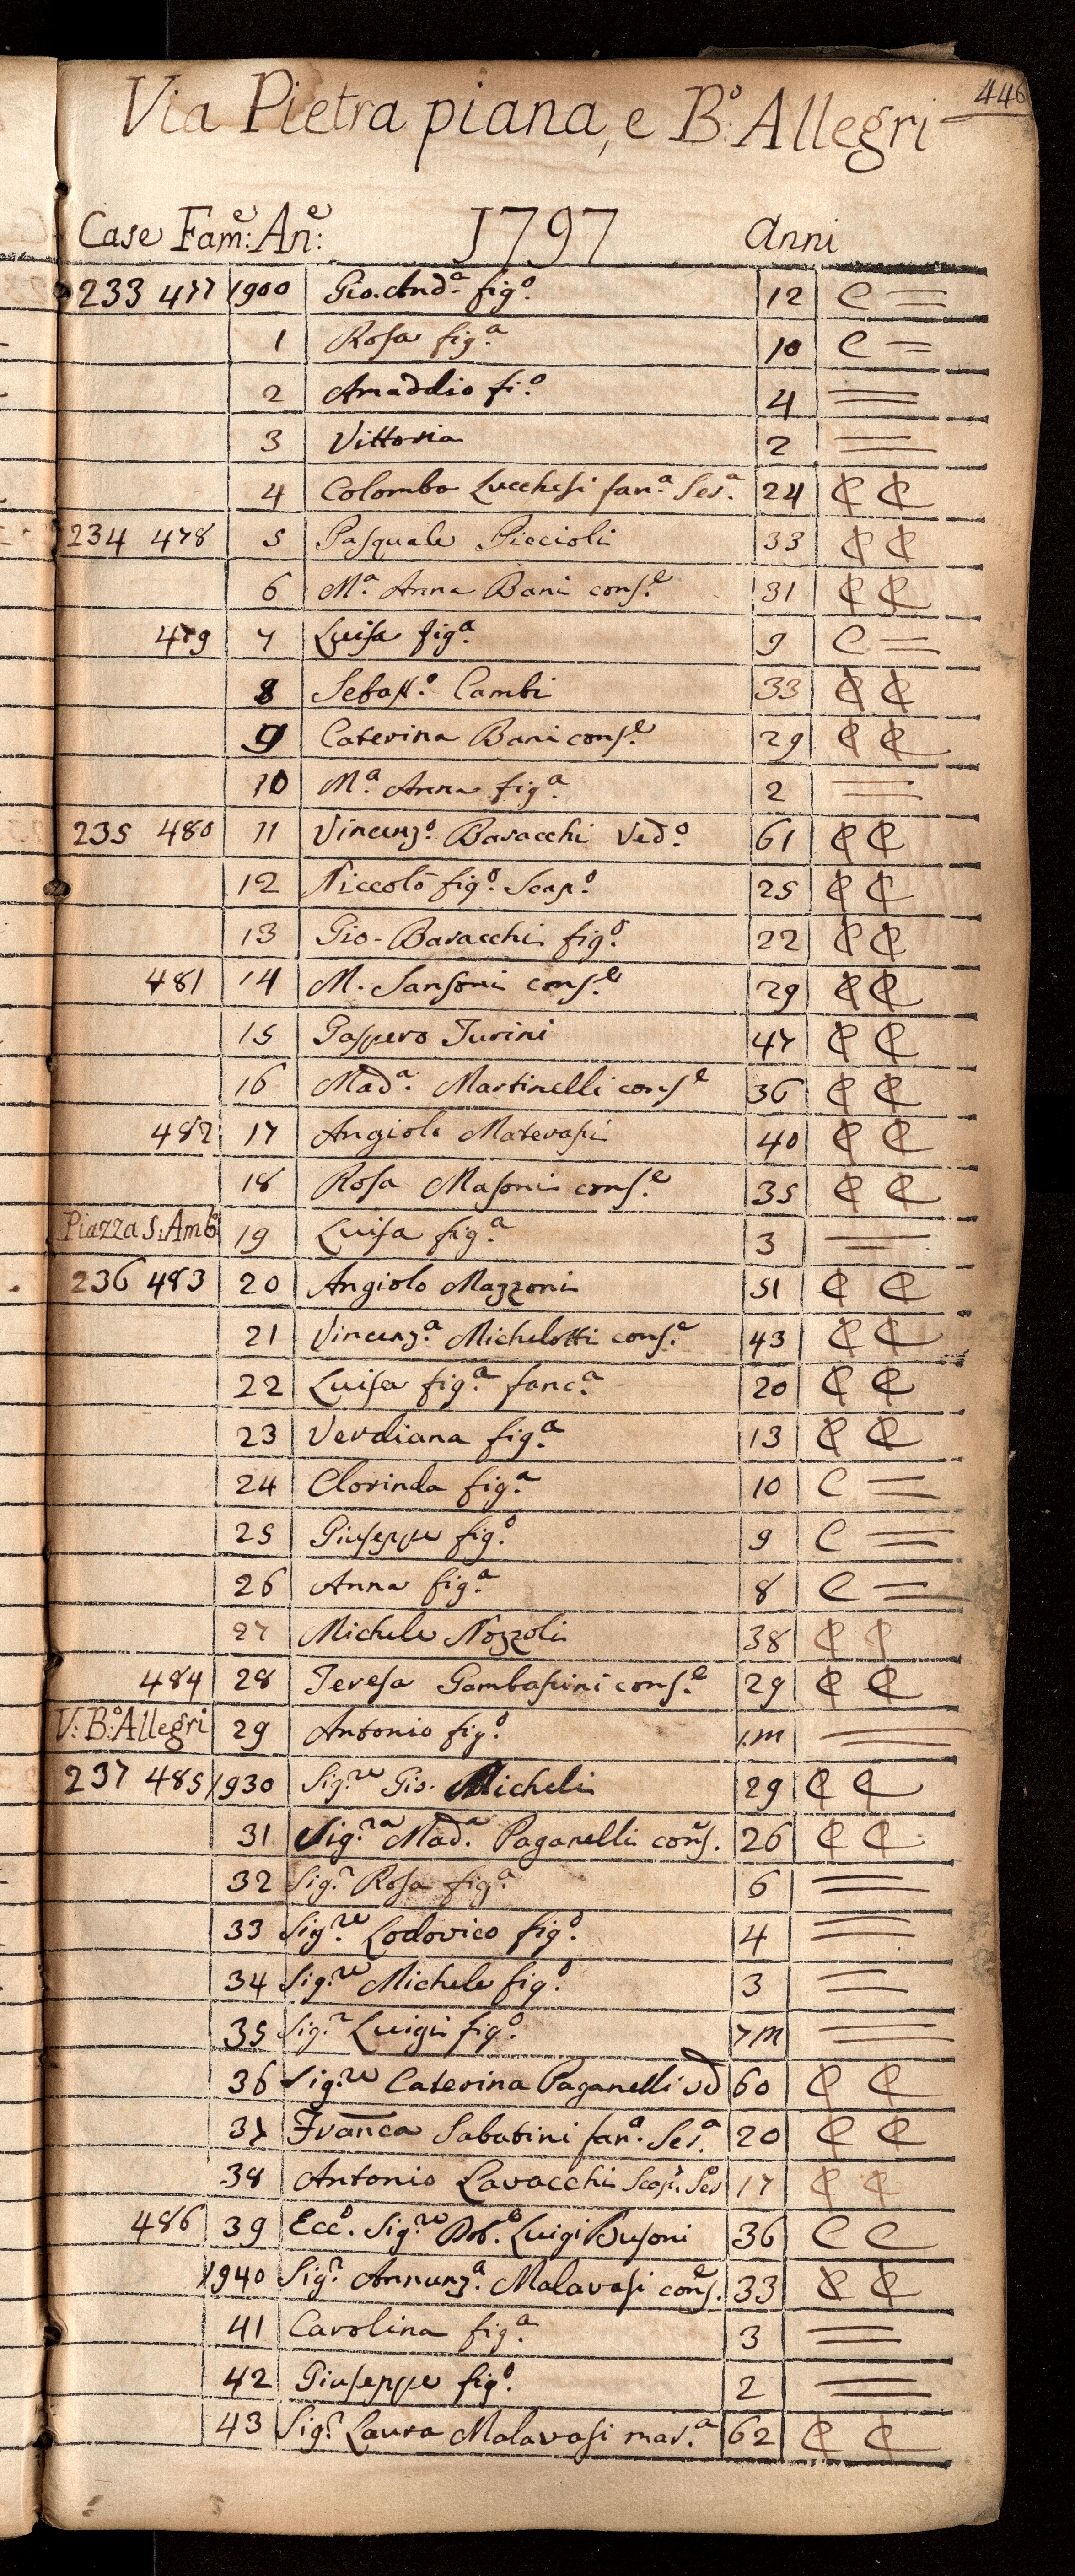 446
Via Pietra piana, e Bº: Allegri
Case Fam:e An:e 1797 Anni
233 477 1900 Gio. Andª. figº. 12 C =
1 Rosa figª. 10 C =
2 Amaddio fi.º 4 =
3 Vittoria 2 =
4 Colomba Lucchesi fan.ª Ser.ª 24 ₵ ₵
234 478 5 Pasquale Piccioli 33 ₵ ₵
6 M.ª Anna Bani cons.e 31 ₵ ₵
479 7 Luisa fig.ª 9 C =
8 Sebast.º Cambi 33 ₵ ₵
9 Caterina Bani cons.e 29 ₵ ₵
10 M.ª Anna fig.ª 2 =
235 480 11 Vincenz.º Baracchi Ved.º 61 ₵ ₵
12 Niccolò fig.º Scap.º 25 ₵ ₵
13 Gio. Baracchi fig.º 22 ₵ ₵
481 14 M. Sansoni cons.e 29 ₵ ₵
15 Gaspero Turini 47 ₵ ₵
16 Mad.ª Martinelli cons.e 36 ₵ ₵
482 17 Angiolo Materasi 40 ₵ ₵
18 Rosa Masoni cons.e 35 ₵ ₵
Piazza S: Amb.º 19 Luisa fig.ª 3 =
236 483 20 Angiolo Mazzoni 51 ₵ ₵
21 Vincenz.ª Michelotti cons.e 43 ₵ ₵
22 Luisa fig.ª fanc.ª 20 ₵ ₵
23 Verdiana fig.ª 13 ₵ ₵
24 Clorinda fig.ª 10 C =
25 Giuseppe fig.º 9 C =
26 Anna fig.ª 8 C =
27 Michele Nozzoli 38 ₵ ₵
484 28 Teresa Gambasini cons.e 29 ₵ ₵
V: B:º Allegri 29 Antonio fig.º 1.m =
237 485 1930 Sig.re Gio. Micheli 29 ₵ ₵
31 Sig.ra Mad.ª Paganelli cons.e 26 ₵ ₵
32 Sig.r Rosa fig.ª 6 =
33 Sig.re Lodovico fig.º 4 =
34 Sig.re Michele fig.º 3 =
35 Sig.r Luigi fig.º 7m =
36 Sig.re Caterina Paganelli vd 60 ₵ ₵
37 Franca Sabatini fan.ª Ser.ª 20 ₵ ₵
38 Antonio Lavacchi Scap.º Ser 17 ₵ ₵
486 39 Ecc.º Sig.re Dot.e Luigi Busoni 36 C C
1940 Sig.r Annunz.ª Malavasi cons.e 33 ₵ ₵
41 Carolina fig.ª 3 =
42 Giuseppe fig.º 2 =
43 Sig.r Laura Malavasi mar.ª 62 ₵ ₵